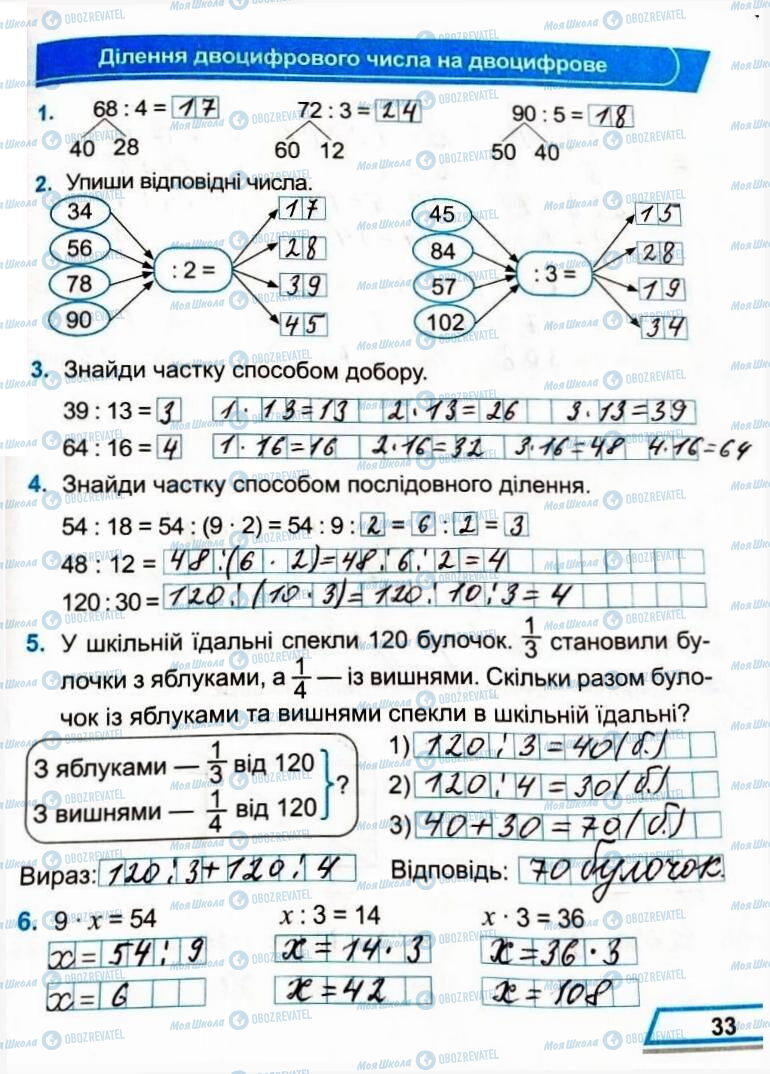 Ділення двоцифрового числа на двоцифрове
1. 68 : 4 = 17 72 : 3 = 24 90 : 5 = 18
40 28 60 12 50 40
2. Упиши відповідні числа.
34 17 45 15
56 28 84 28
: 2 = : 3 =
78 39 57 19
90 45 102 34
3. Знайди частку способом добору.
39 : 13 = 3 1 · 13 = 13 2 · 13 = 26 3 · 13 = 39
64 : 16 = 4 1 · 16 = 16 2 · 16 = 32 3 · 16 = 48 4 · 16 = 64
4. Знайди частку способом послідовного ділення.
54 : 18 = 54 : (9 · 2) = 54 : 9 : 2 = 6 : 2 = 3
48 : 12 = 48 : (6 · 2) = 48 : 6 : 2 = 4
120 : 30 = 120 : (10 · 3) = 120 : 10 : 3 = 4
5. У шкільній їдальні спекли 120 булочок. 1/3 становили бу-
лочки з яблуками, а 1/4 — із вишнями. Скільки разом було-
чок із яблуками та вишнями спекли в шкільній їдальні?
З яблуками — 1/3 від 120
З вишнями — 1/4 від 120
?
1) 120 : 3 = 40 (б.)
2) 120 : 4 = 30 (б.)
3) 40 + 30 = 70 (б.)
Вираз: 120 : 3 + 120 : 4 Відповідь: 70 булочок.
6. 9 · x = 54 x : 3 = 14 x · 3 = 36
x = 54 : 9 x = 14 · 3 x = 36 · 3
x = 6 x = 42 x = 108
33
МояШкола OBOZREVATEL